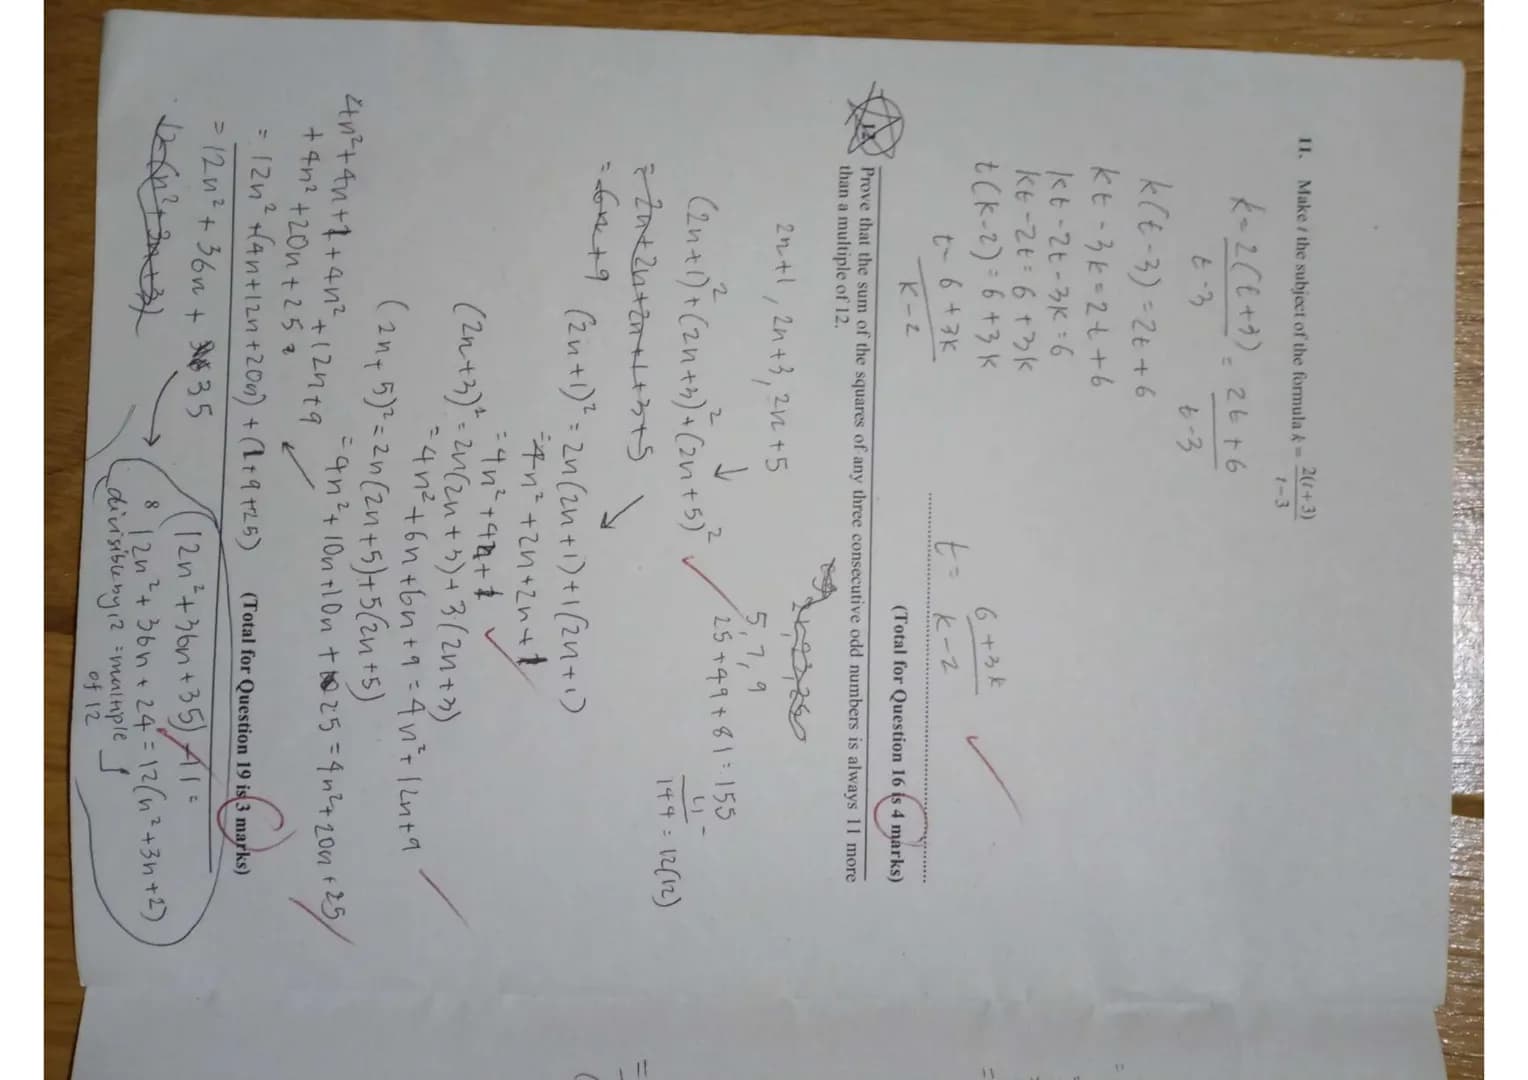 11. Make t the subject of the formula k = 2(t+3)/t−3
k = 2(t+3)/t-3 = 2t+6/t-3
k(t-3) = 2t+6
kt-3k = 2t+6
kt-2t-3k = 6
kt-2t = 6+3k
t(k-2) = 6+3k
t = 6+3k/k-2
t = 6+3k/k-2
(Total for Question 16 is 4 marks)
12 Prove that the sum of the squares of any three consecutive odd numbers is always 11 more
than a multiple of 12.
2n+1, 2n+3, 2n+5
5, 7, 9
25+49+81 = 155
11 -
144 = 12(12)
(2n+1)²+(2n+3)²+(2n+5)²
= 2n+2n+2n+1+3+5
= 6n+9
(2n+1)² = 2n(2n+1)+1(2n+1)
= 4n²+2n+2n+1
= 4n²+4n+1
(2n+3)² = 2n(2n+3)+3(2n+3)
= 4n²+6n+6n+9 = 4n²+12n+9
(2n+5)² = 2n(2n+5)+5(2n+5)
= 4n²+10n+10n+25 = 4n²+20n+25
4n²+4n+1+4n²+12n+9
+4n²+20n+25 =
= 12n²+(4n+12n+20n)+(1+9+25)
(Total for Question 19 is 3 marks)
= 12n²+36n+35
(12n²+36n+35)-11 =
12n²+36n+24 = 12(n²+3n+2)
divisible by 12 = multiple
of 12